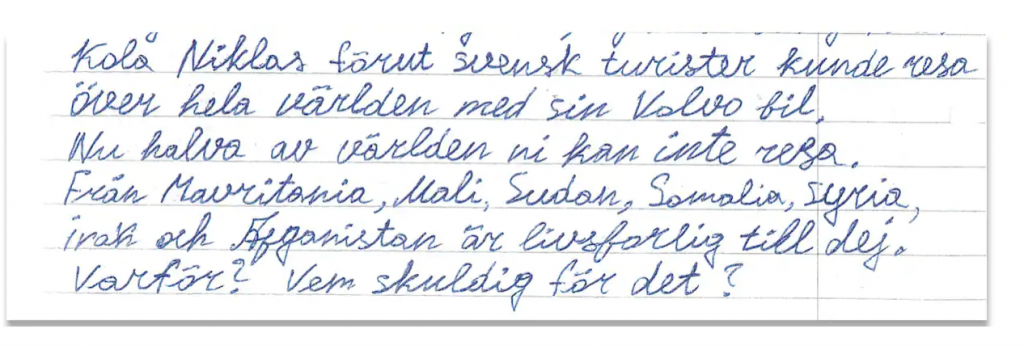 Kolå Niklas förut svensk turister kunde resa
över hela världen med sin Volvo bil.
Nu halva av världen ni kan inte resa.
Från Mauritania, Mali, Sudan, Somalia, Syria,
irak och Afganistan är livsfarlig till dej.
Varför? Vem skuldig för det?